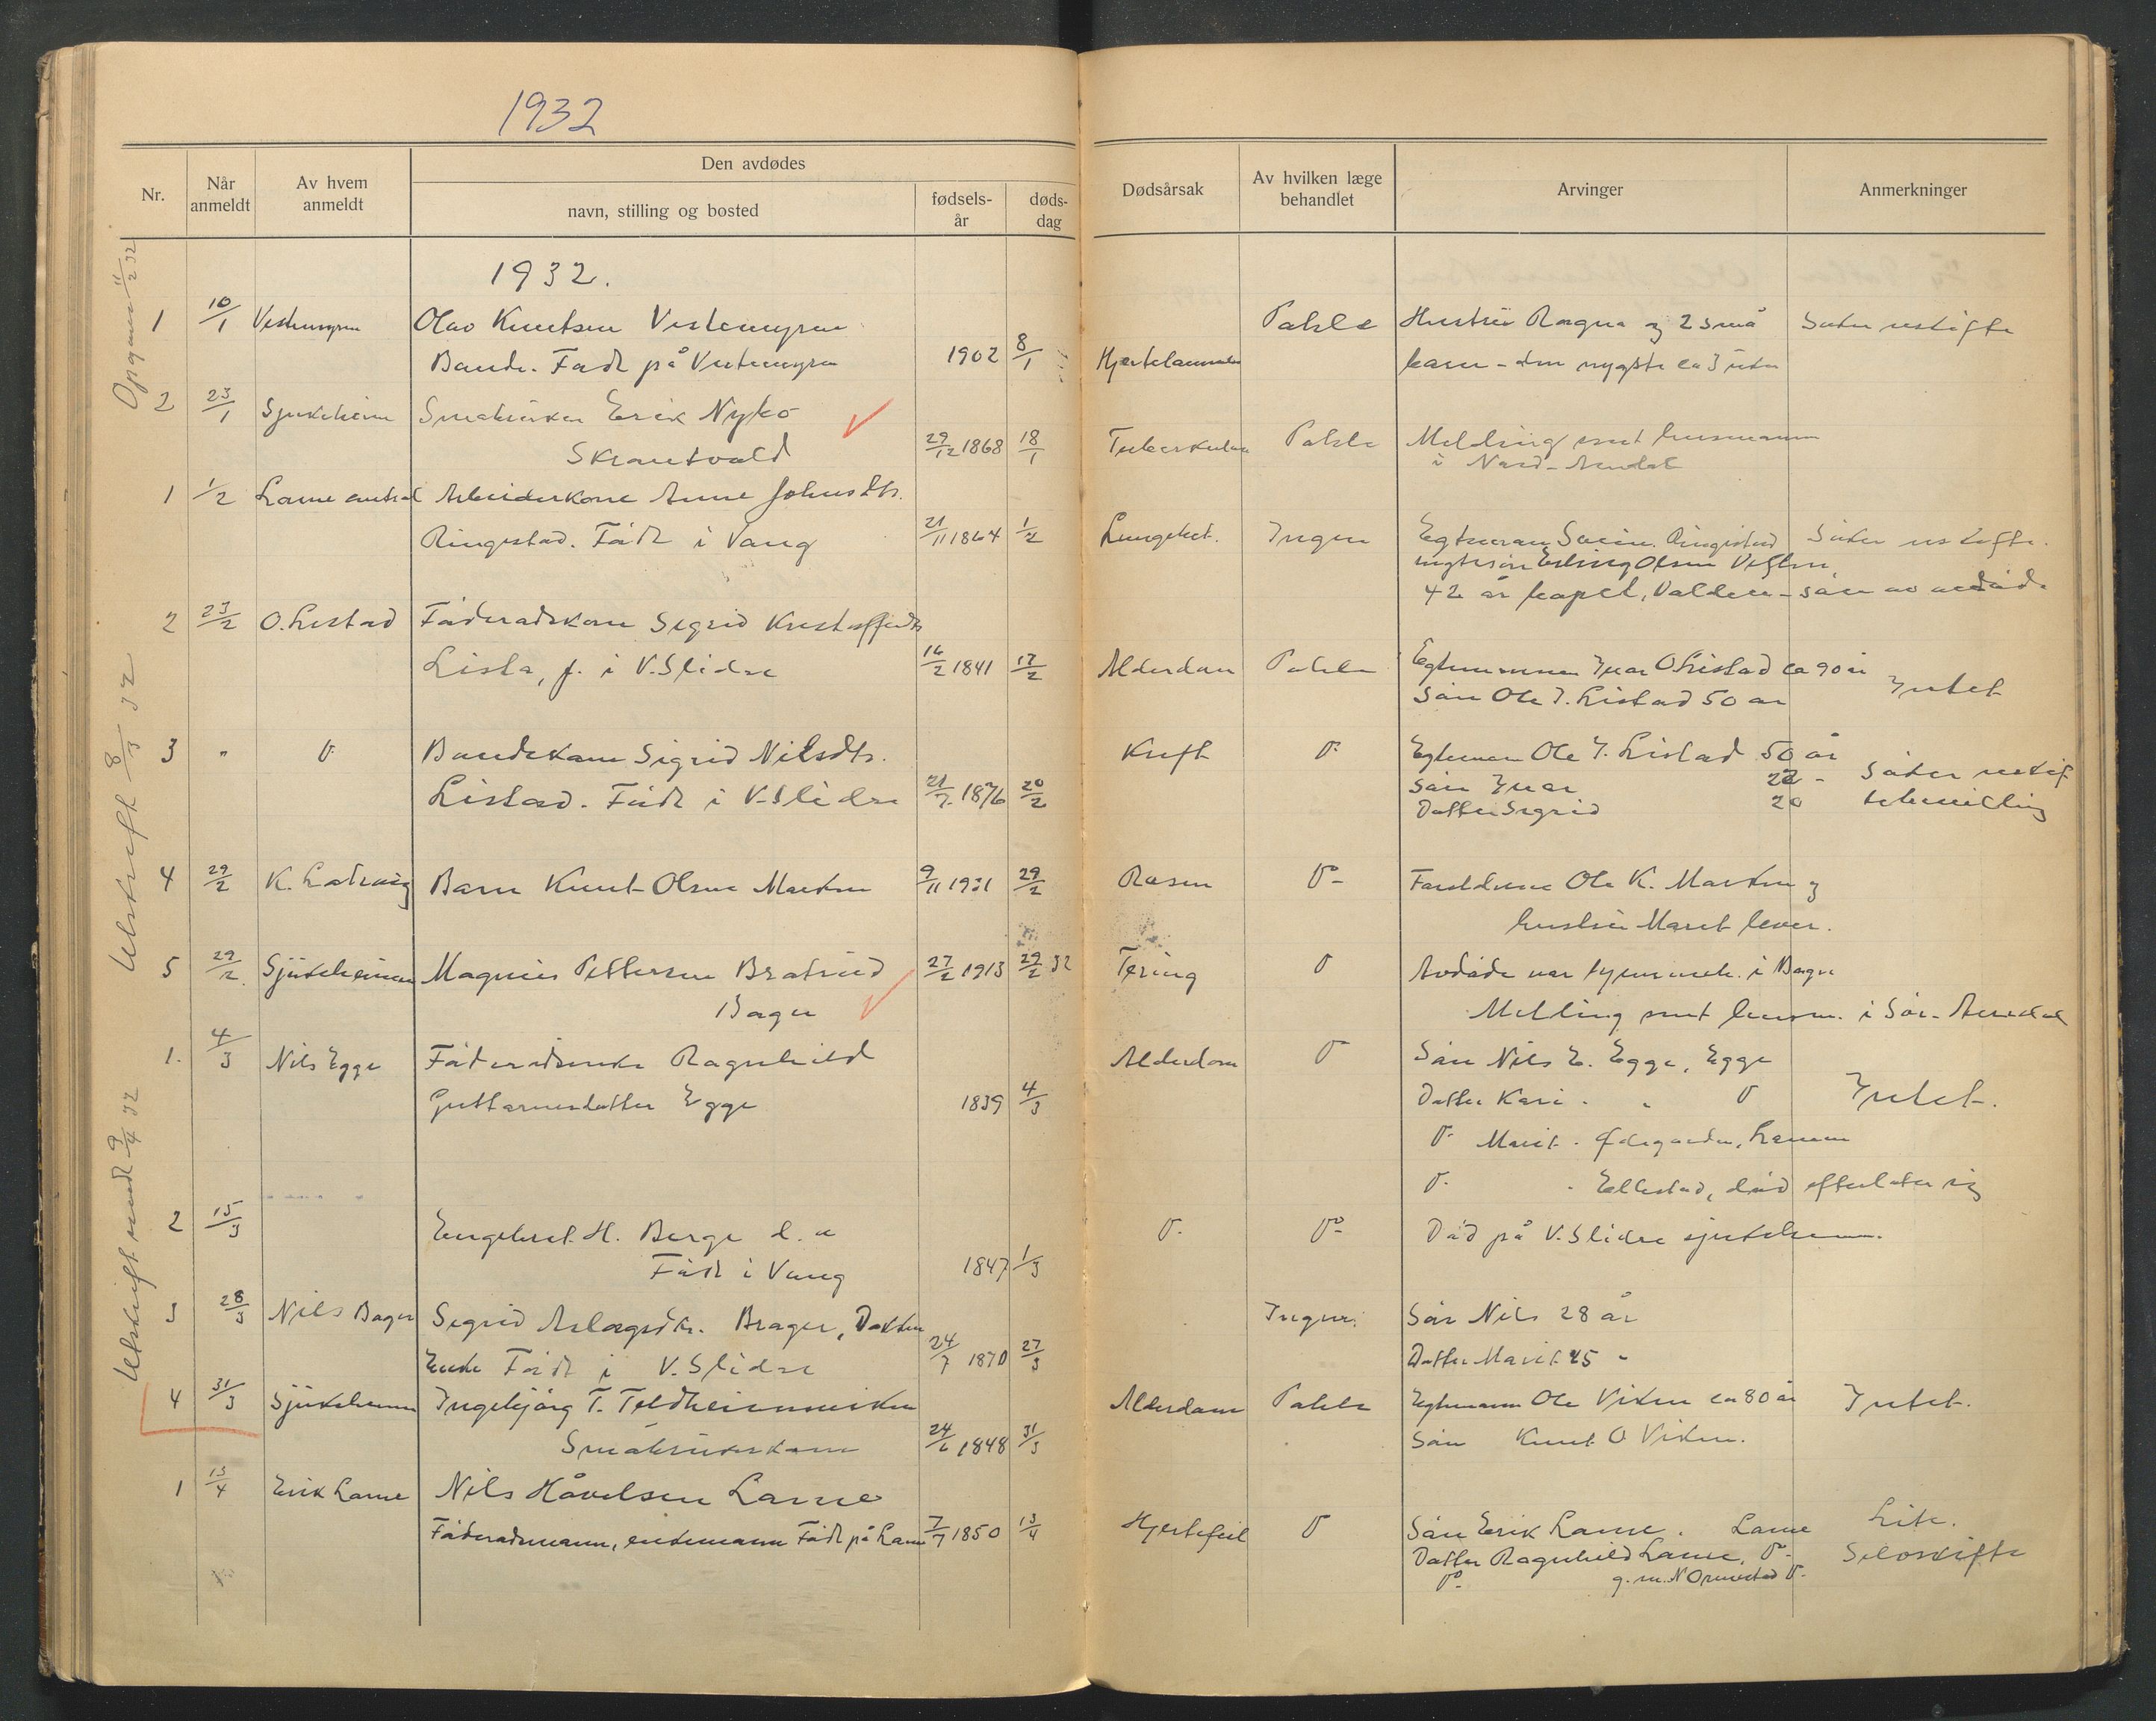 1932
Nr.
Når anmeldt
Av hvem anmeldt
Den avdødes
navn, stilling og bosted
fødsels-år
døds-dag
Dødsårsak
Av hvilken læge behandlet
Arvinger
Anmerkninger
1932.
1 10/1 Vestemyren Olav Knutsen Vestemyren Pahle Hustru Ragna og 2 små Sitter uskifte
Bonde. Født på Vestemyren 1902 8/1 barn - den yngste ca 3 uker
2 23/1 Sjukeheim Småbruker Erik Nyko
Skrautvold 29/12 1868 18/1 Tuberkulose Pahle Melding sent lensmannen
i Nord-Aurdal
1 1/2 Lome central Arbeiderkone Anne Johnsdtr.
Ringestad. Født i Vang 21/11 1864 1/2 Lungebet. Ingen Egtemann Ringestad Sitter uskifte.
Erling Olsen
42 år
2 23/2 O. Listad Føderadskone Sigrid Kristoffersdtr
Lista, f. i V. Slidre 16/2 1841 17/2 Alderdom Pahle Egtemannen Ivar O Listad ca 90 år
Søn Ole I. Listad 50 år Intet
3 " D Bondekone Sigrid Nilsdtr. Kreft D Egtemann Ole I. Listad 50 år
Listad. Født i V. Slidre 21/7 1876 20/2 Søn Ivar 22 - Sitter uskif
Datter Sigrid 20 tebevilling
4 29/2 K. Barn Knut Olsen 9/11 1931 29/2 Rosen D - Foreldrene Ole K. og
hustru Marit lever.
5 29/2 Sjukeheimen Magnus Pettersen Bratrud 27/2 1913 29/2 32 Tering D Avdøde var hjemmeh. i Bagn
Bagn Melding sent lensm. i Sør-Aurdal
1. 4/3 Nils Egge Føderadsenke Ragnhild Alderdom D Søn Nils E. Egge, Egge
Guttormsdatter Egge 1839 4/3 Datter Kari - " D Intet.
D Marit - Lomen
D - Ellestad, død efterlater sig
2 15/3 Engebret H. Berge D. D - Død på V. Slidre sjukeheim.
Født i Vang 1847 1/3
3 28/3 Nils Sigrid Aslagsdtr. Ingen. Søn Nils 28 år
Enke Født i V. Slidre 24/7 1870 27/3 Datter Marit 25 "
4 31/3 Sjukeheimen Ingebjørg T. Alderdom Pahle Egtemann Ole Viken ca 80 år Intet.
Småbrukerkone 24/6 1848 31/3 Søn Knut O Viken.
1 13/4 Erik Lome Nils Håvelsen Lome
Føderadsmann, enkemann Født på Lome 7/7 1850 13/4 Hjertefeil D Søn Erik Lome. Lome Lite.
Datter Ragnhild Lome. D - Selvskifte
D - g. m. N D -
Utskrift 8/3 32
Utskrift sendt 9/4 32